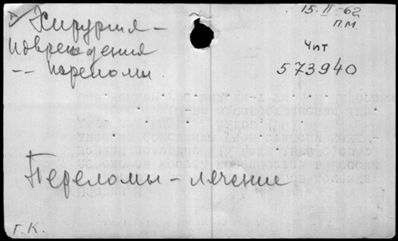 Хирургия –
повреждения
-- переломы
15.II-62
П.М.
Чит
573940
Переломы – лечение
Г.К.